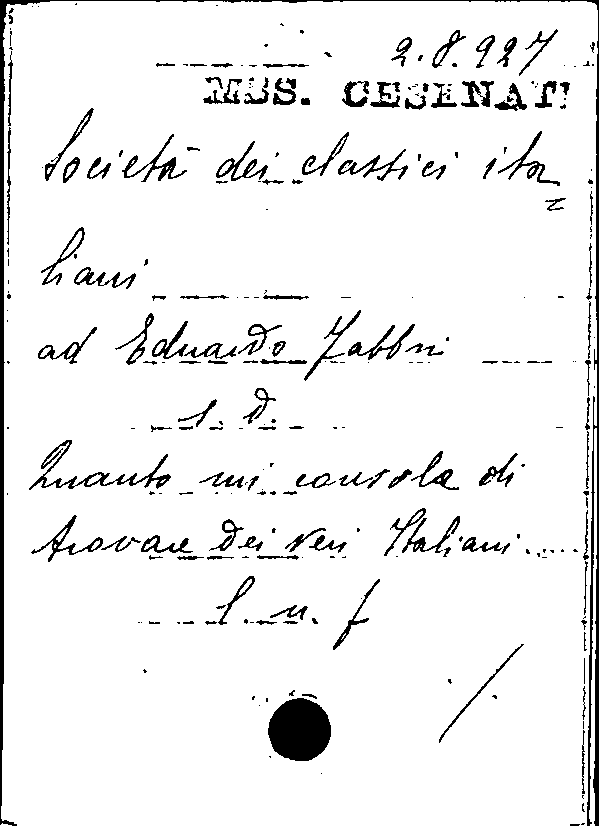 2.8.927
MSS. CESENATI
Società dei classici ita
=
liani
ad Eduardo Fabbri
s. d.
Quanto mi consola di
trovare dei veri Italiani....
l. n. f
./.